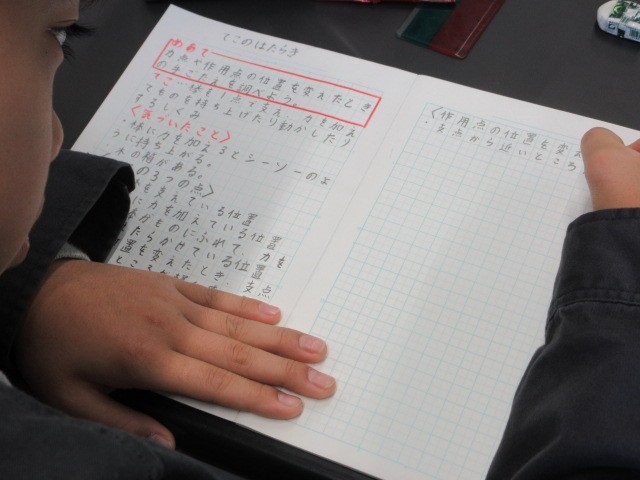 てこのはたらき
めあて
力点や作用点の位置を変えたとき
の手ごたえを調べよう。
てこ…棒を1点で支え、力を加え
てものを持ち上げたり動かしたり
するしくみ
〈気づいたこと〉
・棒に力を加えるとシーソーのよ
うに持ち上がる。
の3つの点〉
を支えている位置
に力を加えている位置
がものにふれて、力を
たらかせている位置
置を変えたとき
支点
〈作用点の位置を変え
・支点から近いところ